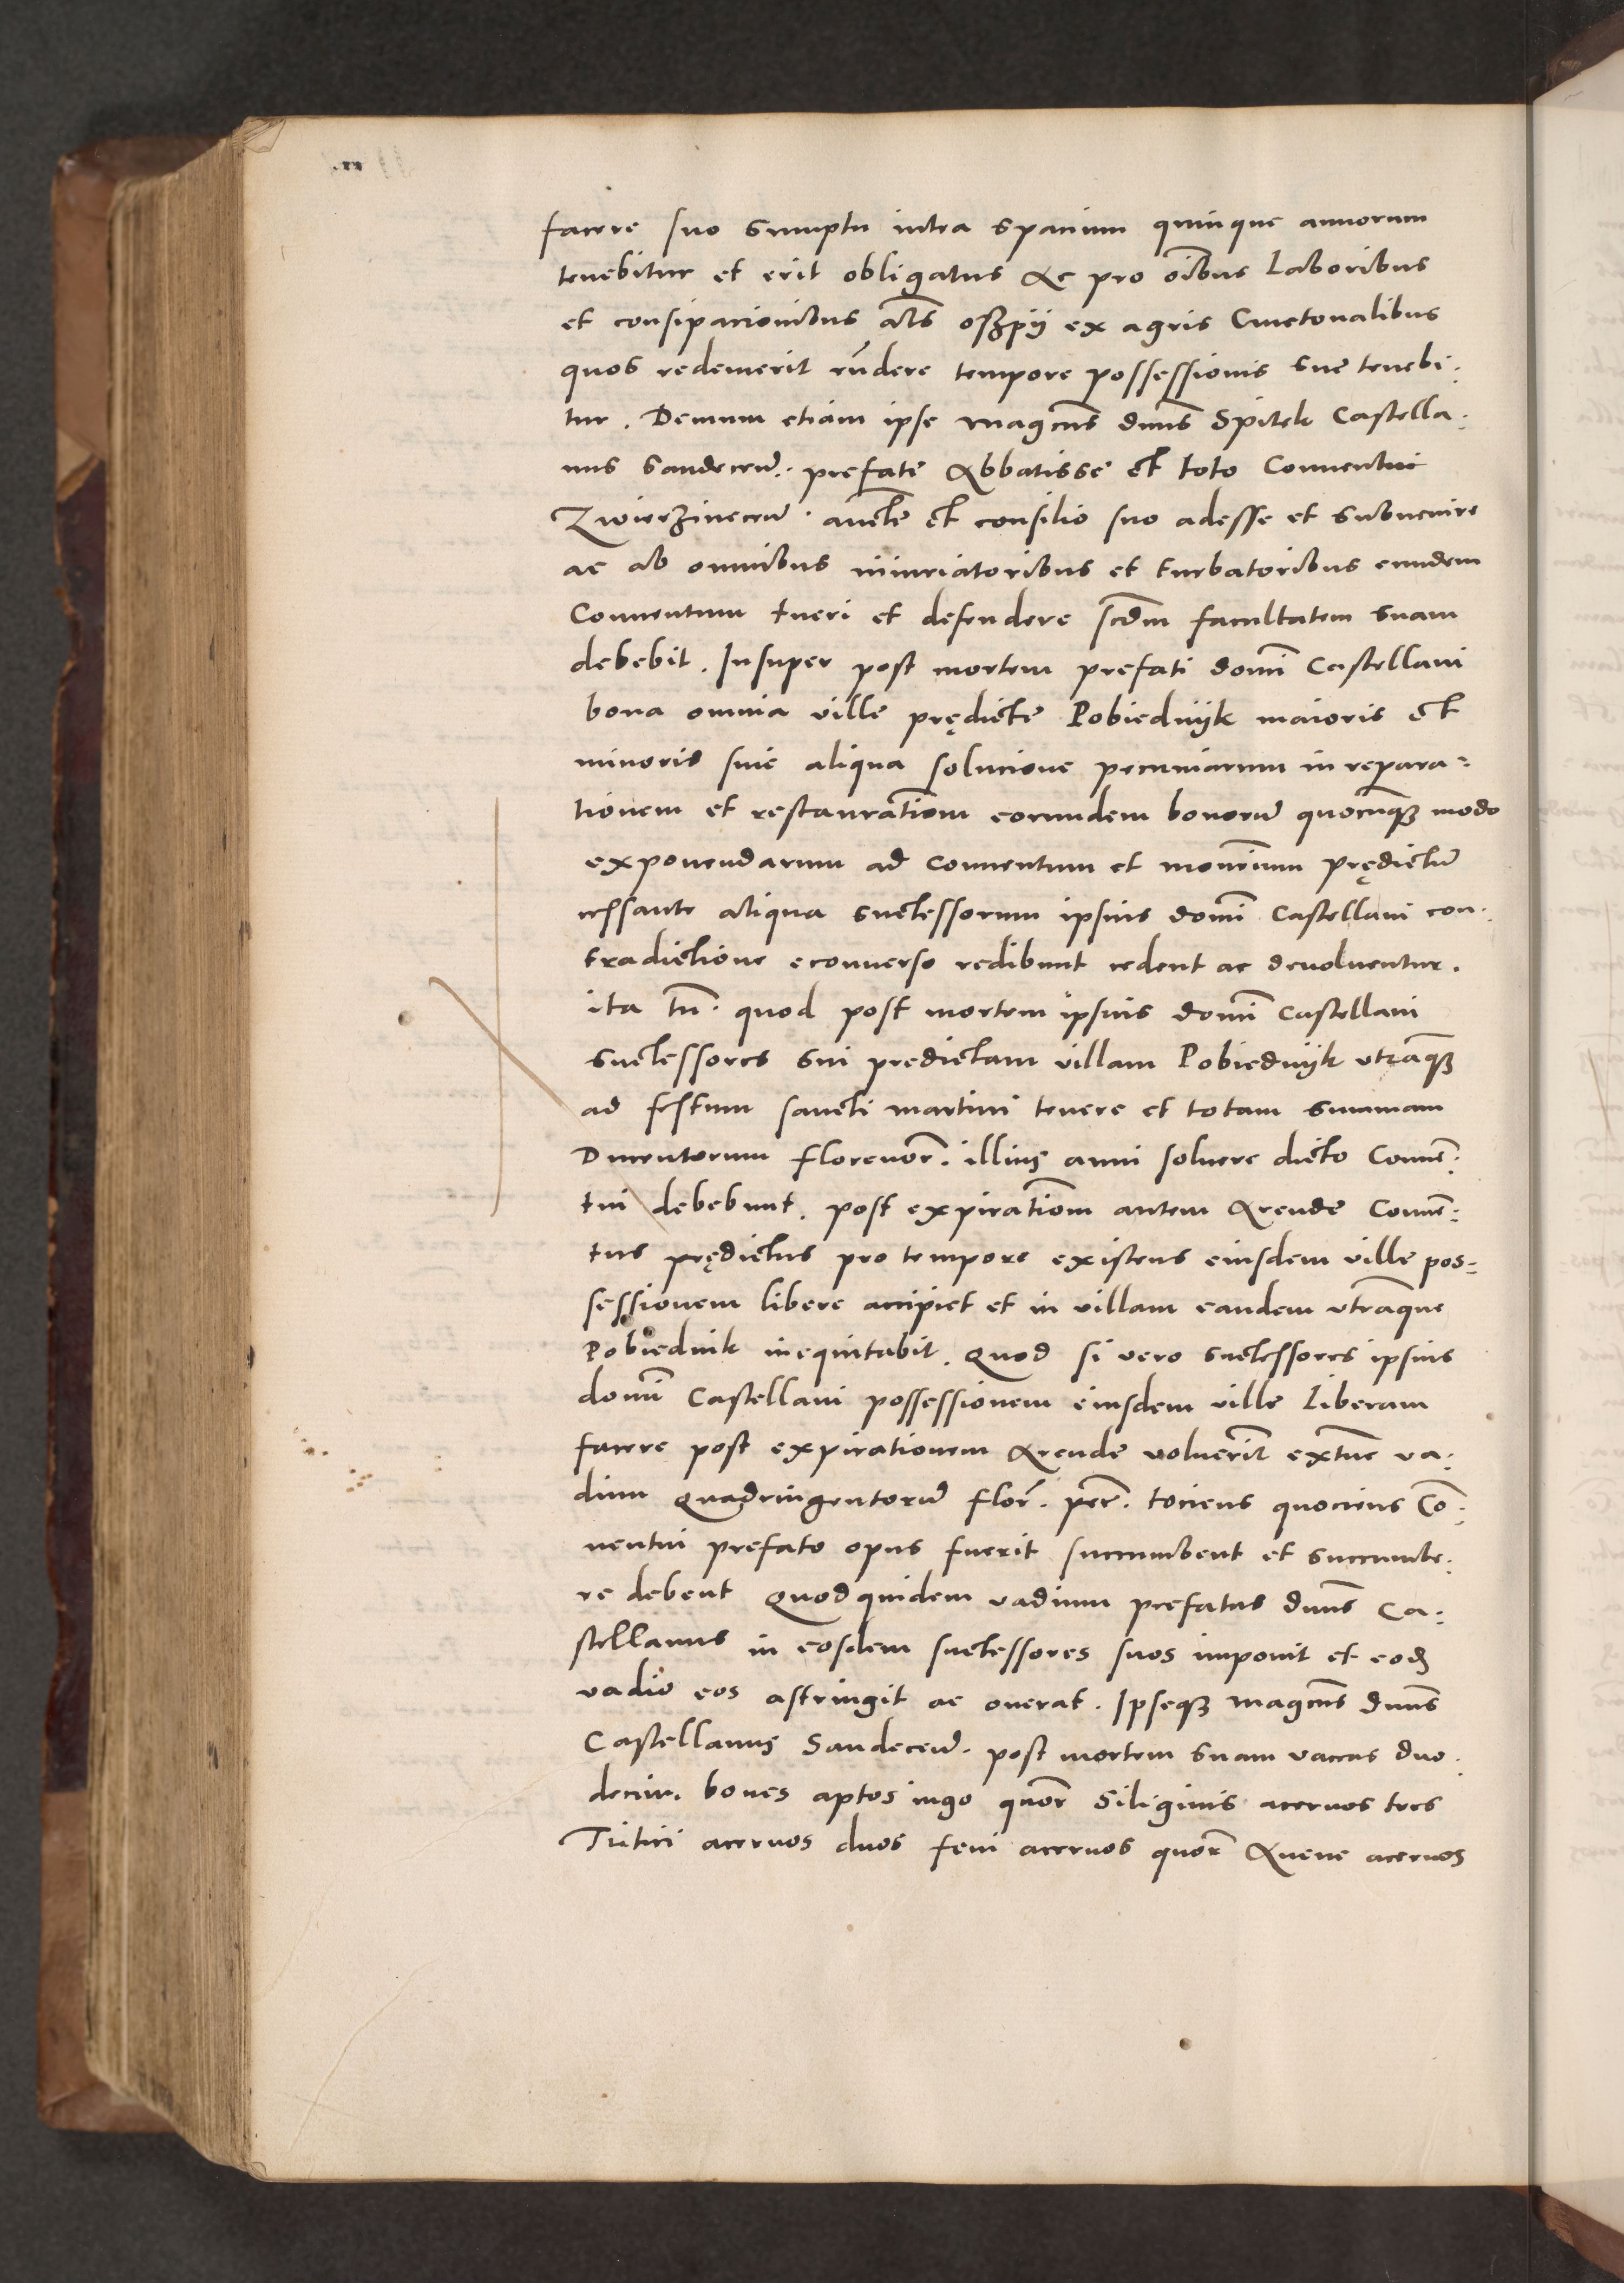 facere suo sumptu intra spacium quinque annorum
tenebitur et erit obligatus Ac pro oĩbus Laboribus
et consipacionibus al̃s osʒpij ex agris Cmetonalibus
quos redemerit rñdere tempore possessionis sue tenebi:
tur. Demum etiam ipse magc̃us dñus Spitek Castella:
nus Sandeceñ. prefate Abbatisse et toto Conuentui
Zwierzinecen̄. aucte et consilio suo adesse et subuenire
ac ab omnibus iniuriatoribus et turbatoribus eundem
Conuentum tueri et defendere scd̃m facultatem suam
debebit. Insuper post mortem prefati domĩ Castellani
bona omnia ville prędicte Pobiednijk maioris et
minoris sine aliqua solucione pecuniarum in repara=
tionem et restaurat̃iom eorundem bonorū quocunqȝ modo
exponendarum ad Conuentum et monr̃ium prędictū
cessante aliqua successorum ipsius domĩ Castellani con:
tradictione econuerso redibunt cedent ac deuoluentur.
ita tñ. quod post mortem ipsius domĩ Castellani
successores sui predictam villam Pobiednijk vtrāqȝ
ad festum sancti martini tenere et totam summam
Ducentorum florenor̃. illius anni soluere dicto Conuē:
tui debebunt. post expirat̃iom autem Arende Conuē:
tus prędictus pro tempore existens eiusdem ville pos=
sessionem libere accipiet et in villam eandem vtrāque
Pobiednik inequitabit. Quod si vero successores ipsius
domĩ Castellani possessionem eiusdem ville Liberam
facere post expirationem Arende voluerīt extūc va:
dium quadringentorū flor̃. pēr. tociens quociens Cō:
uentui prefato opus fuerit succumbent et succumbe:
re debent Quodquidem vadium prefatus dñus Ca:
stellanus in eosdem successores suos imponit et eod̃
vadio eos astringit ac onerat. Ipseqȝ magc̃us dñus
Castellanus Sandeceñ. post mortem suam vaccas duo:
decim. boues aptos iugo quor̃ Siliginis aceruos tres
Tritici aceruos duos feni aceruos quor̃ Auene aceruos